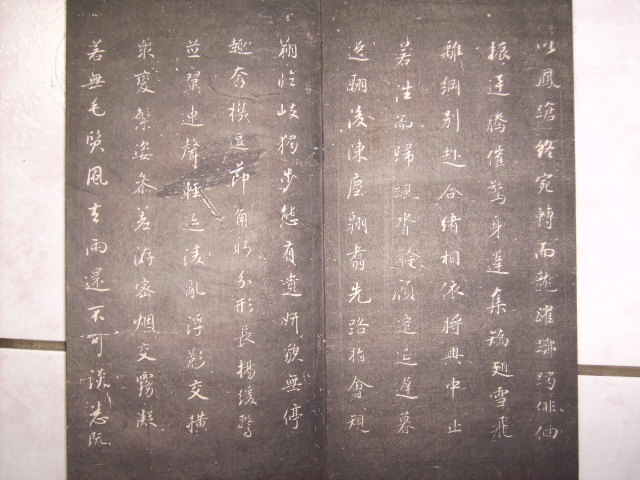 以鳳蹌終宛轉而龍躍躑躅俳佪
振迅騰催驚身蓬集矯翅雪飛
離綱別赴合緒相依將興中止
若往而歸颯沓矜顧遷延遲暮
逸翮後陳塵翱翥先路指會規
翔臨岐獨步態有遺妍貌無停
趣奔機逗節角睞分形長揚緩鶩
並翼連聲輕迹凌亂浮影交橫
衆變繁姿參差洊密烟交霧凝
若無毛質風去雨還不可談悉既